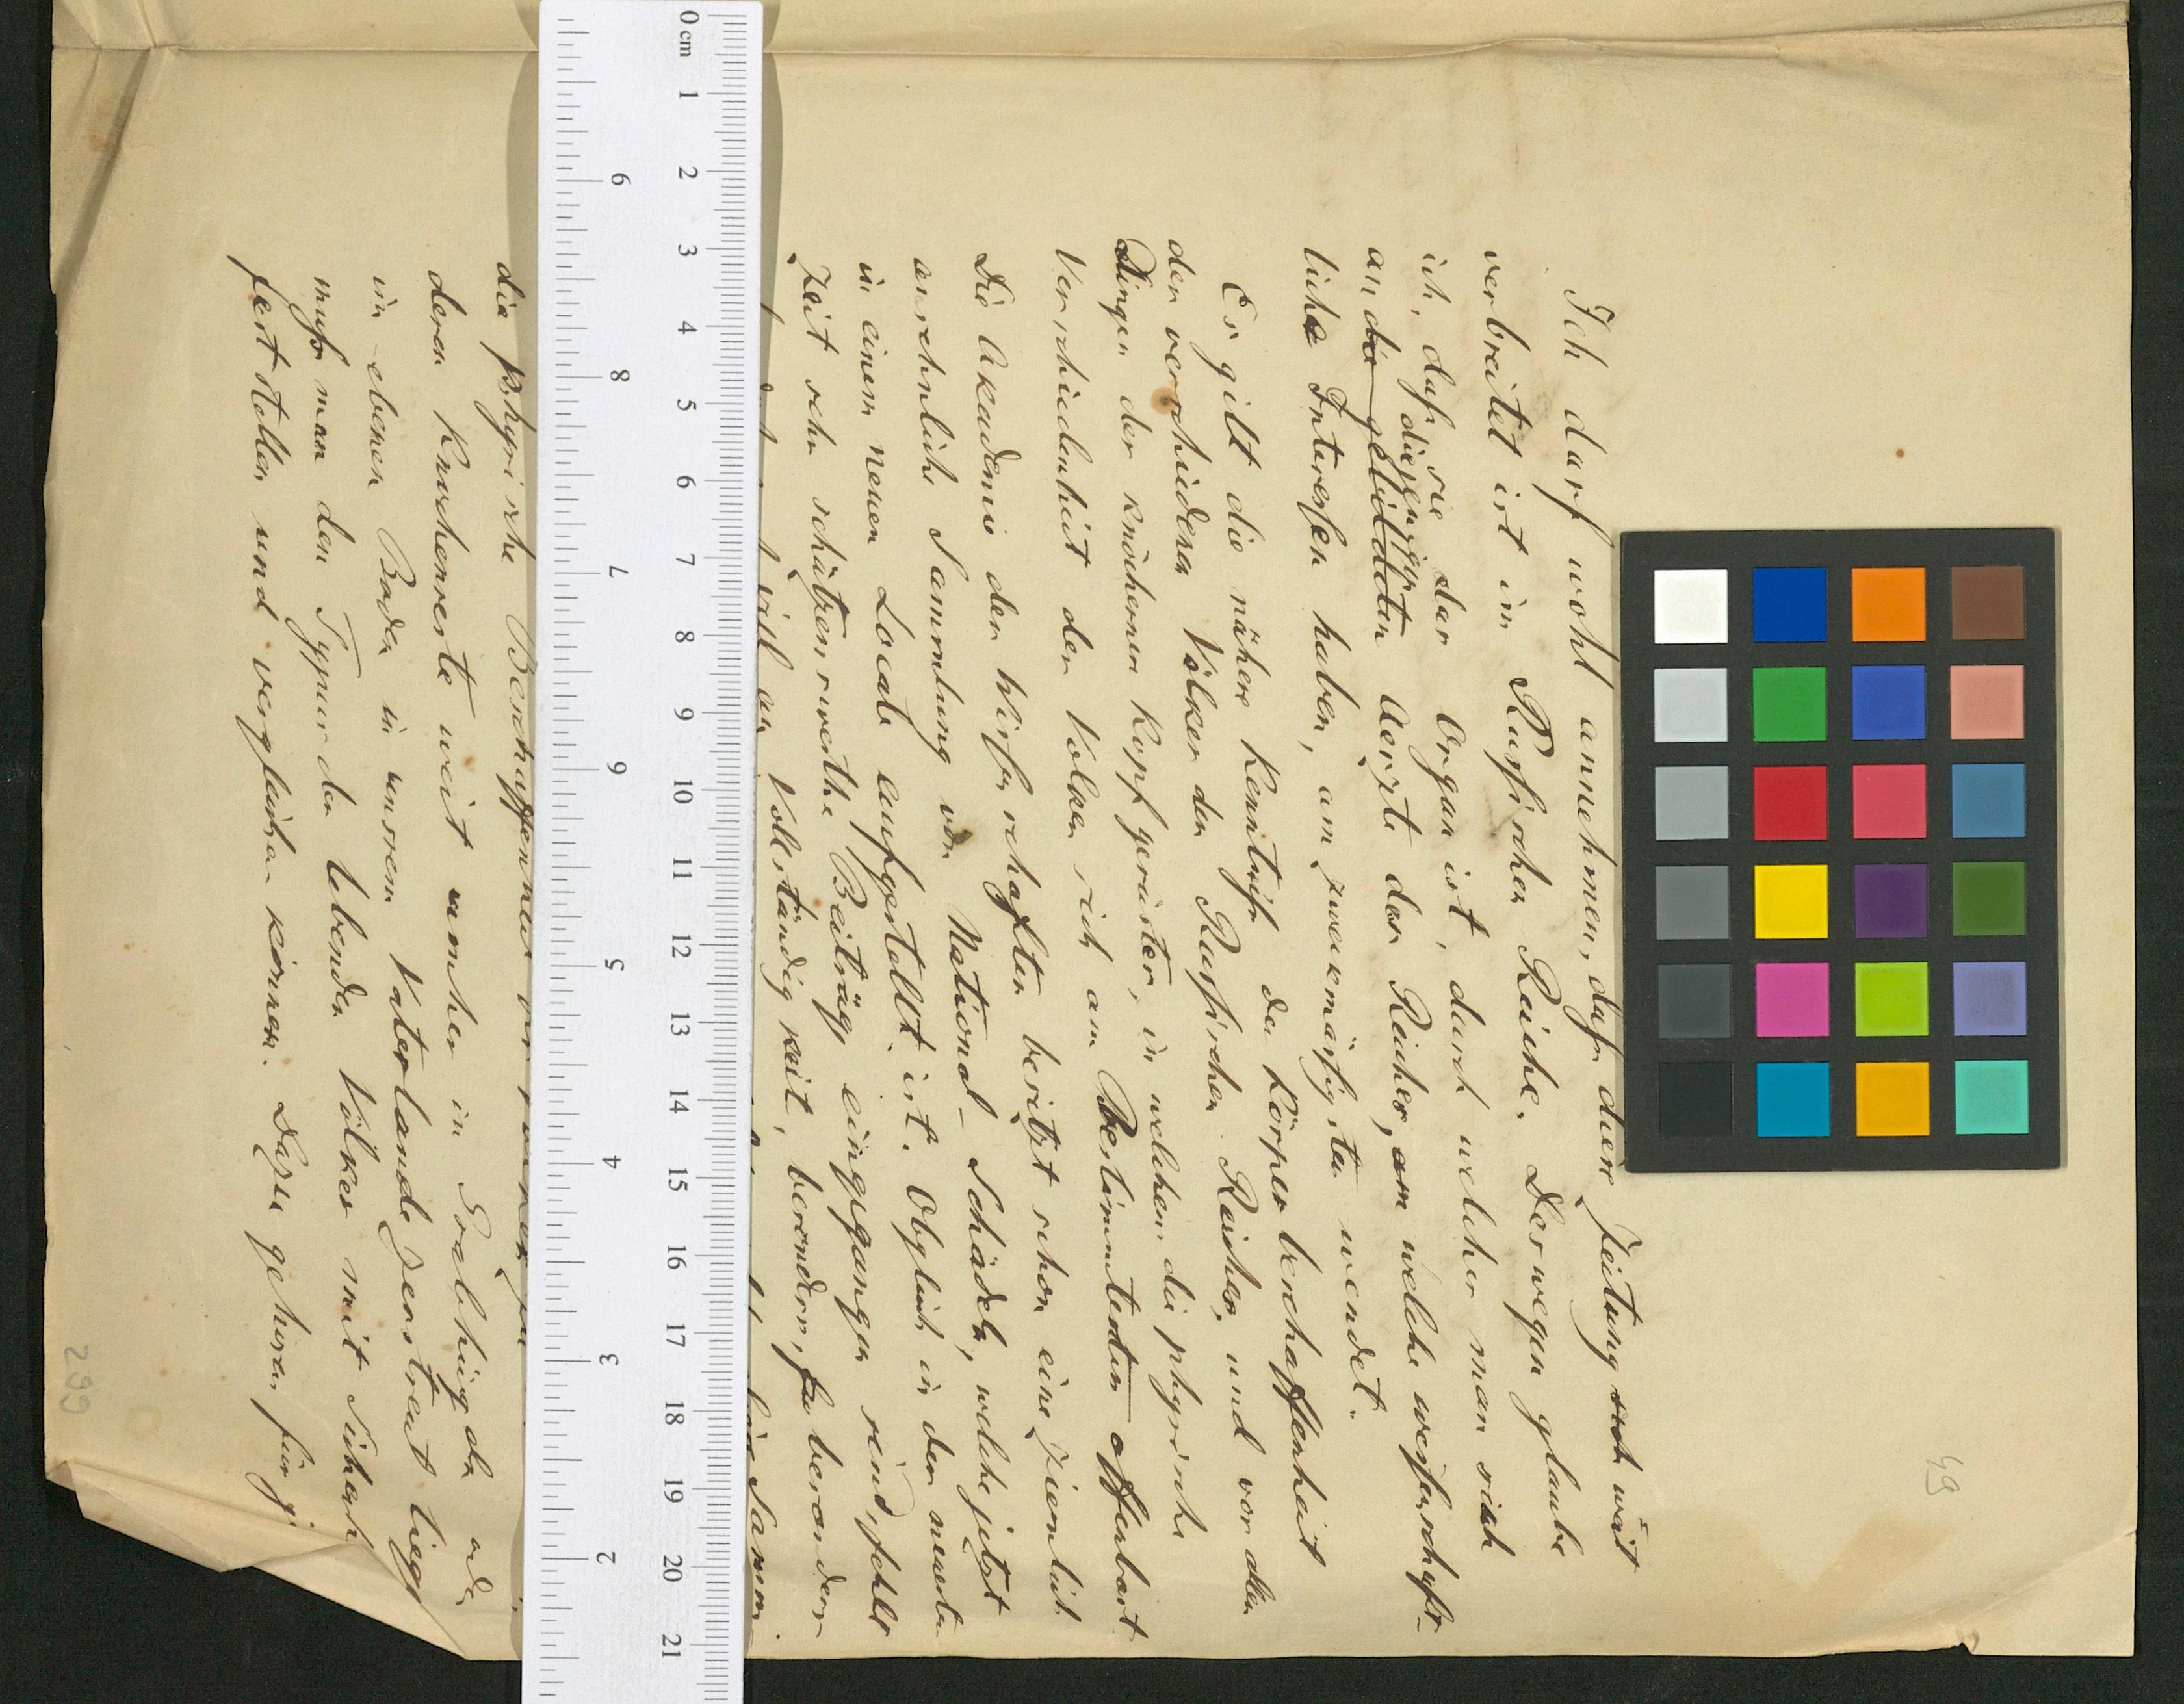 49
Ich darf wohl annehmen, daſs dieſe Zeitung weit
verbreitet ist in Ruſsischen Reiche. Deswegen glaube
ich, daſs sie das Organ ist, durch welches man sich
an die gebildeten diejenigen Aerzte des Reiches, welche wiſsenschaft-
liche Intereſsen haben, am zweckmäſsigsten wendet.
Es gilt die nähere Kenntniſs der Körperbeschaffenheit
der verschiedenen Völker des Ruſsischen Reiches, und vor allen
Dingen der knöchernen Kopfgerüster, in welchen die physische
Verschiedenheit der Völker sich am Bestimmtesten offenbart
Die Akademie der Wiſsenschaften besitzt schon eine ziemlich
ansehnliche Sammlung von National-Schädeln, welche jetzt
in einem neuen Locale aufgestellt ist. Obgleich in der neuesten
Zeit sehr schätzenswerthe Beiträge eingegangen sind, fehlt
viel an Vollständigkeit, besonders,
die physische Beschaffenheit
deren Knochenreste weit umher in Grabhügeln
im ebenen Boden in unsrem Vaterlande zerstreut liegen
muſs man den Typus der lebenden Völker mit Sicherh
feststellen und vergleichen können. Dazu gehören für j
299
0 cm 1 2 3 4 5 6 7 8 9 10 11 12 13 14 15 16 17 18 19 20 21
9 8 7 6 5 4 3 2